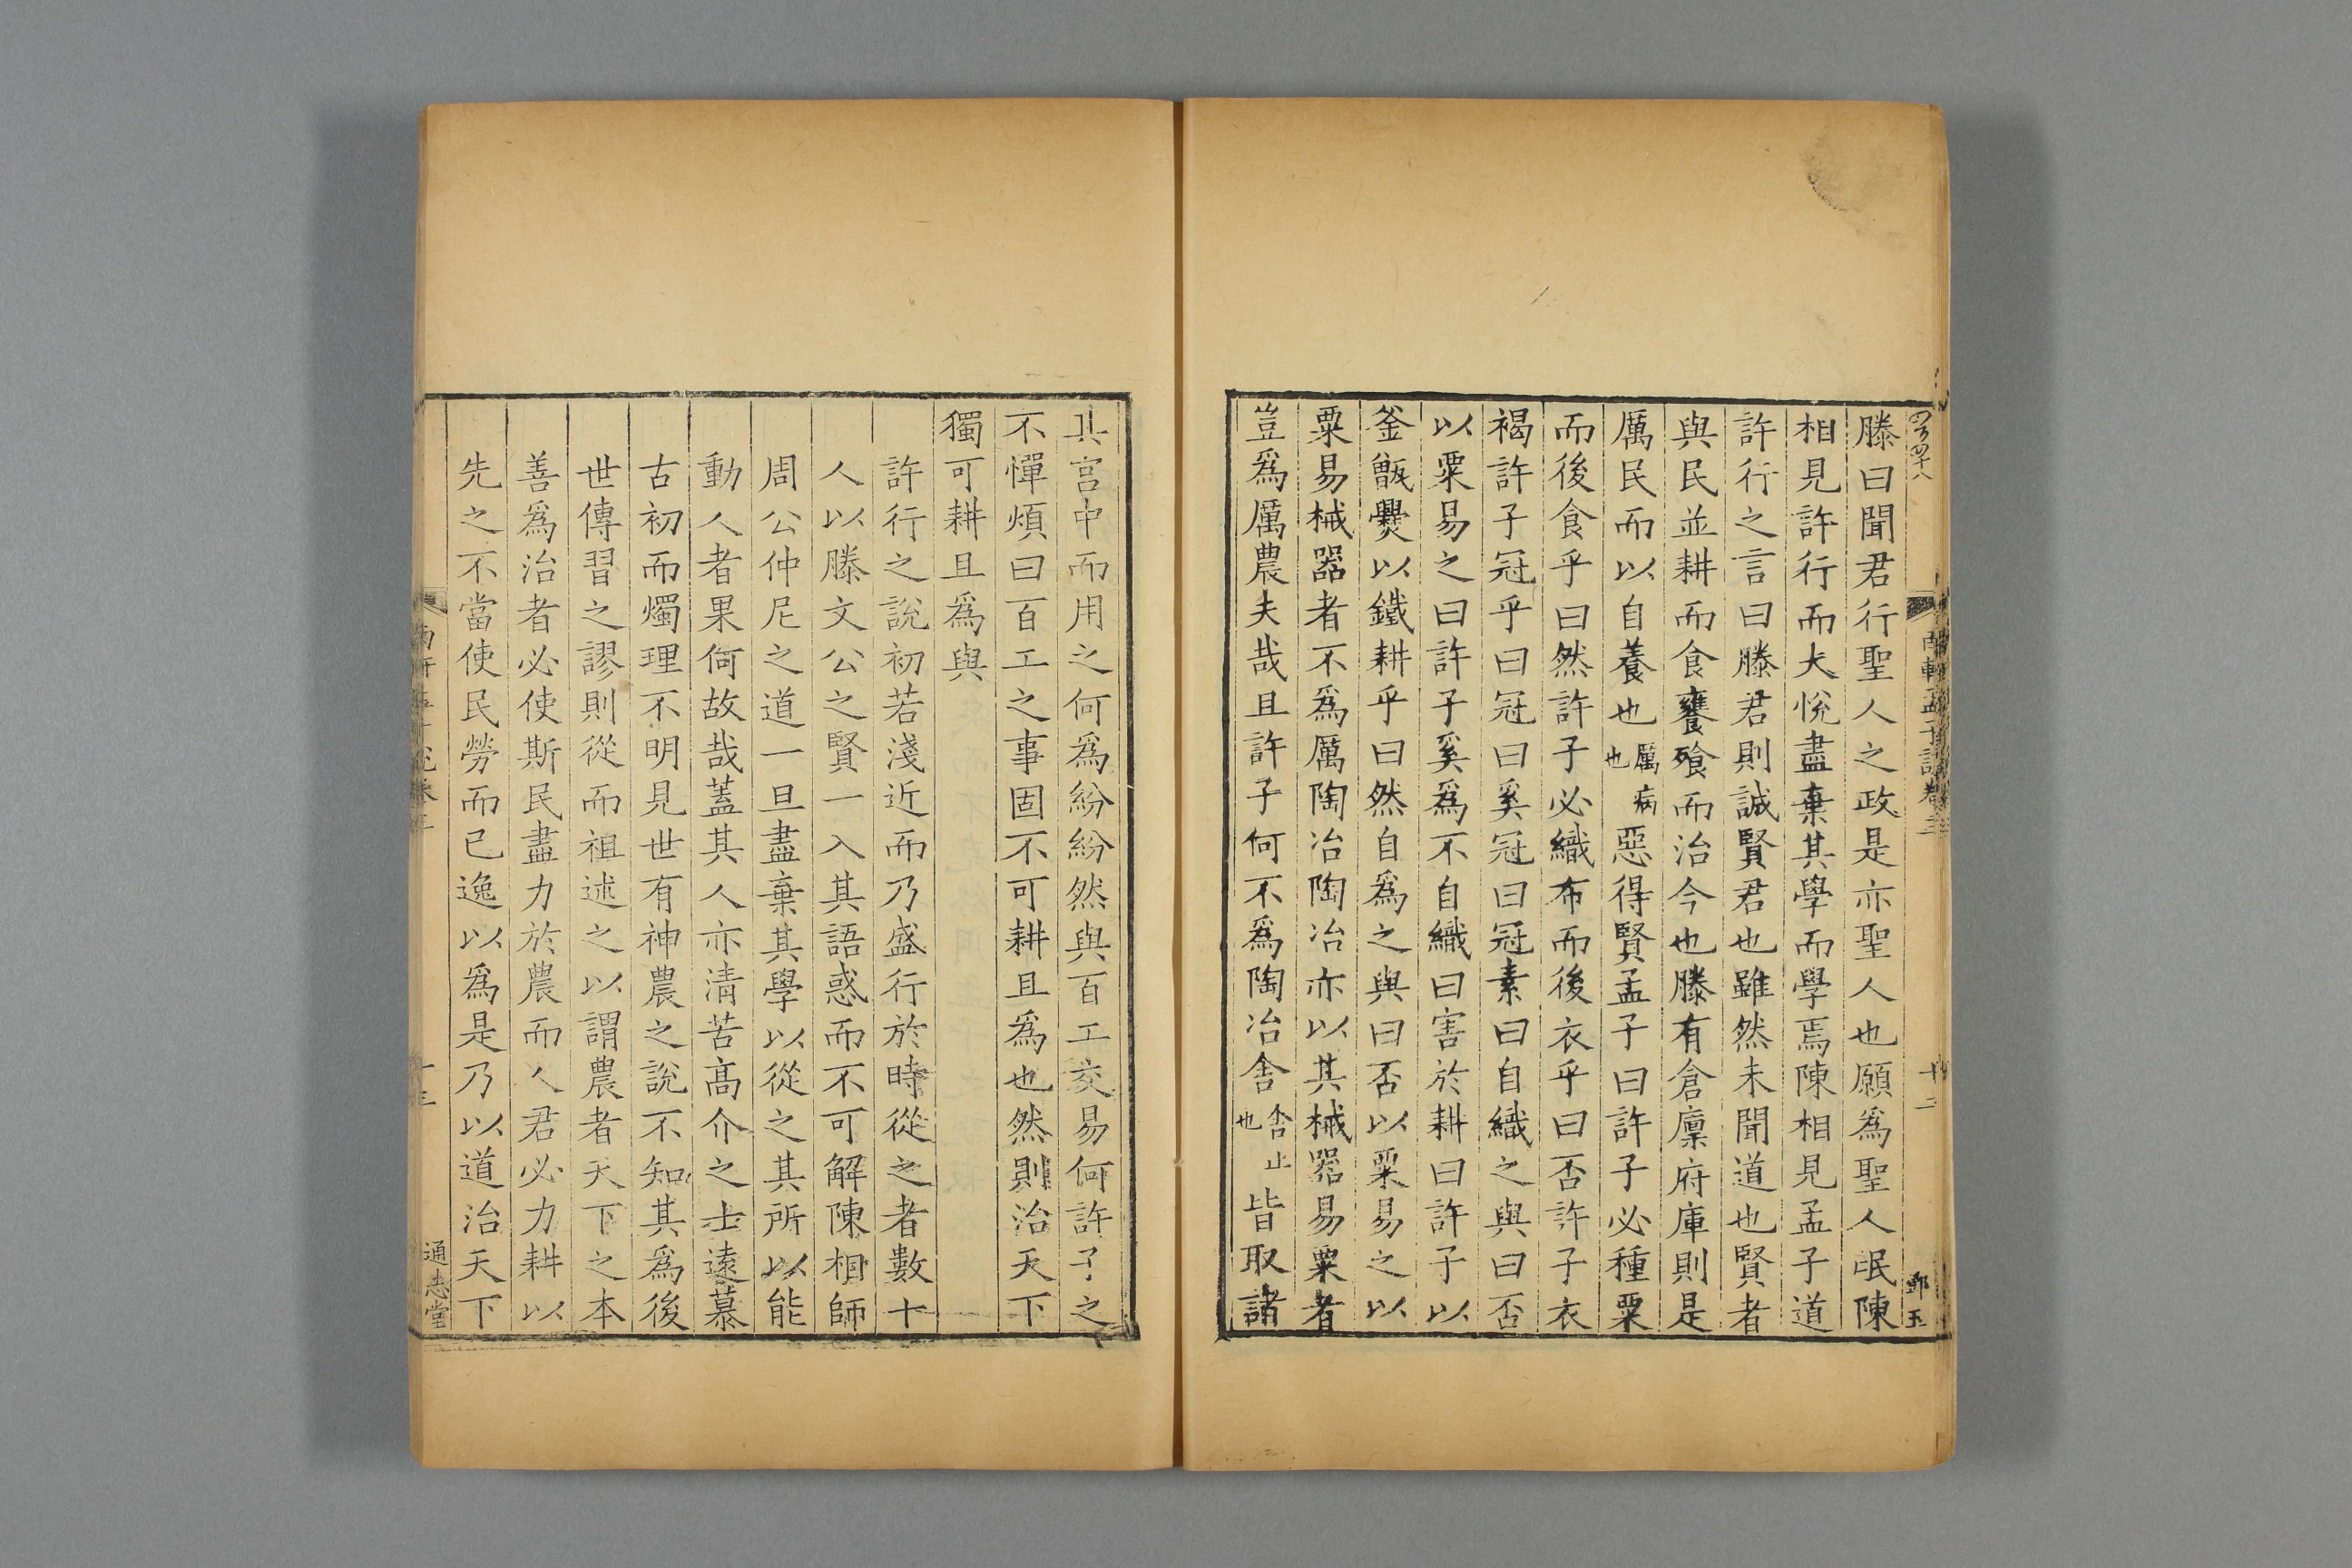 滕曰聞君行聖人之政是亦聖人也願爲聖人氓陳
相見許行而大悅盡棄其學而學焉陳相見孟子道
許行之言曰滕君則誠賢君也雖然未聞道也賢者
與民並耕而食饔飧而治今也滕有倉廩府庫則是
厲民而以自養也厲病也惡得賢孟子曰許子必種粟
而後食乎曰然許子必織布而後衣乎曰否許子衣
褐許子冠乎曰冠曰奚冠曰冠素曰自織之與曰否
以粟易之曰許子奚爲不自織曰害於耕曰許子以
釜甑爨以鐵耕乎曰然自爲之與曰否以粟易之以
粟易械器者不爲厲陶冶陶冶亦以其械器易粟者
豈爲厲農夫哉且許子何不爲陶冶舍舍止也皆取諸
其宮中而用之何爲紛紛然與百工交易何許子之
不憚煩曰百工之事固不可耕且爲也然則治天下
獨可耕且爲與
許行之說初若淺近而乃盛行於時從之者數十
人以滕文公之賢一入其語惑而不可解陳相師
周公仲尼之道一旦盡棄其學以從之其所以能
動人者果何故哉蓋其人亦清苦高介之士遠慕
古初而燭理不明見世有神農之說不知其爲後
世傳習之謬則從而祖述之以謂農者天下之本
善爲治者必使斯民盡力於農而人君必力耕以
先之不當使民勞而已逸以爲是乃以道治天下
通志堂